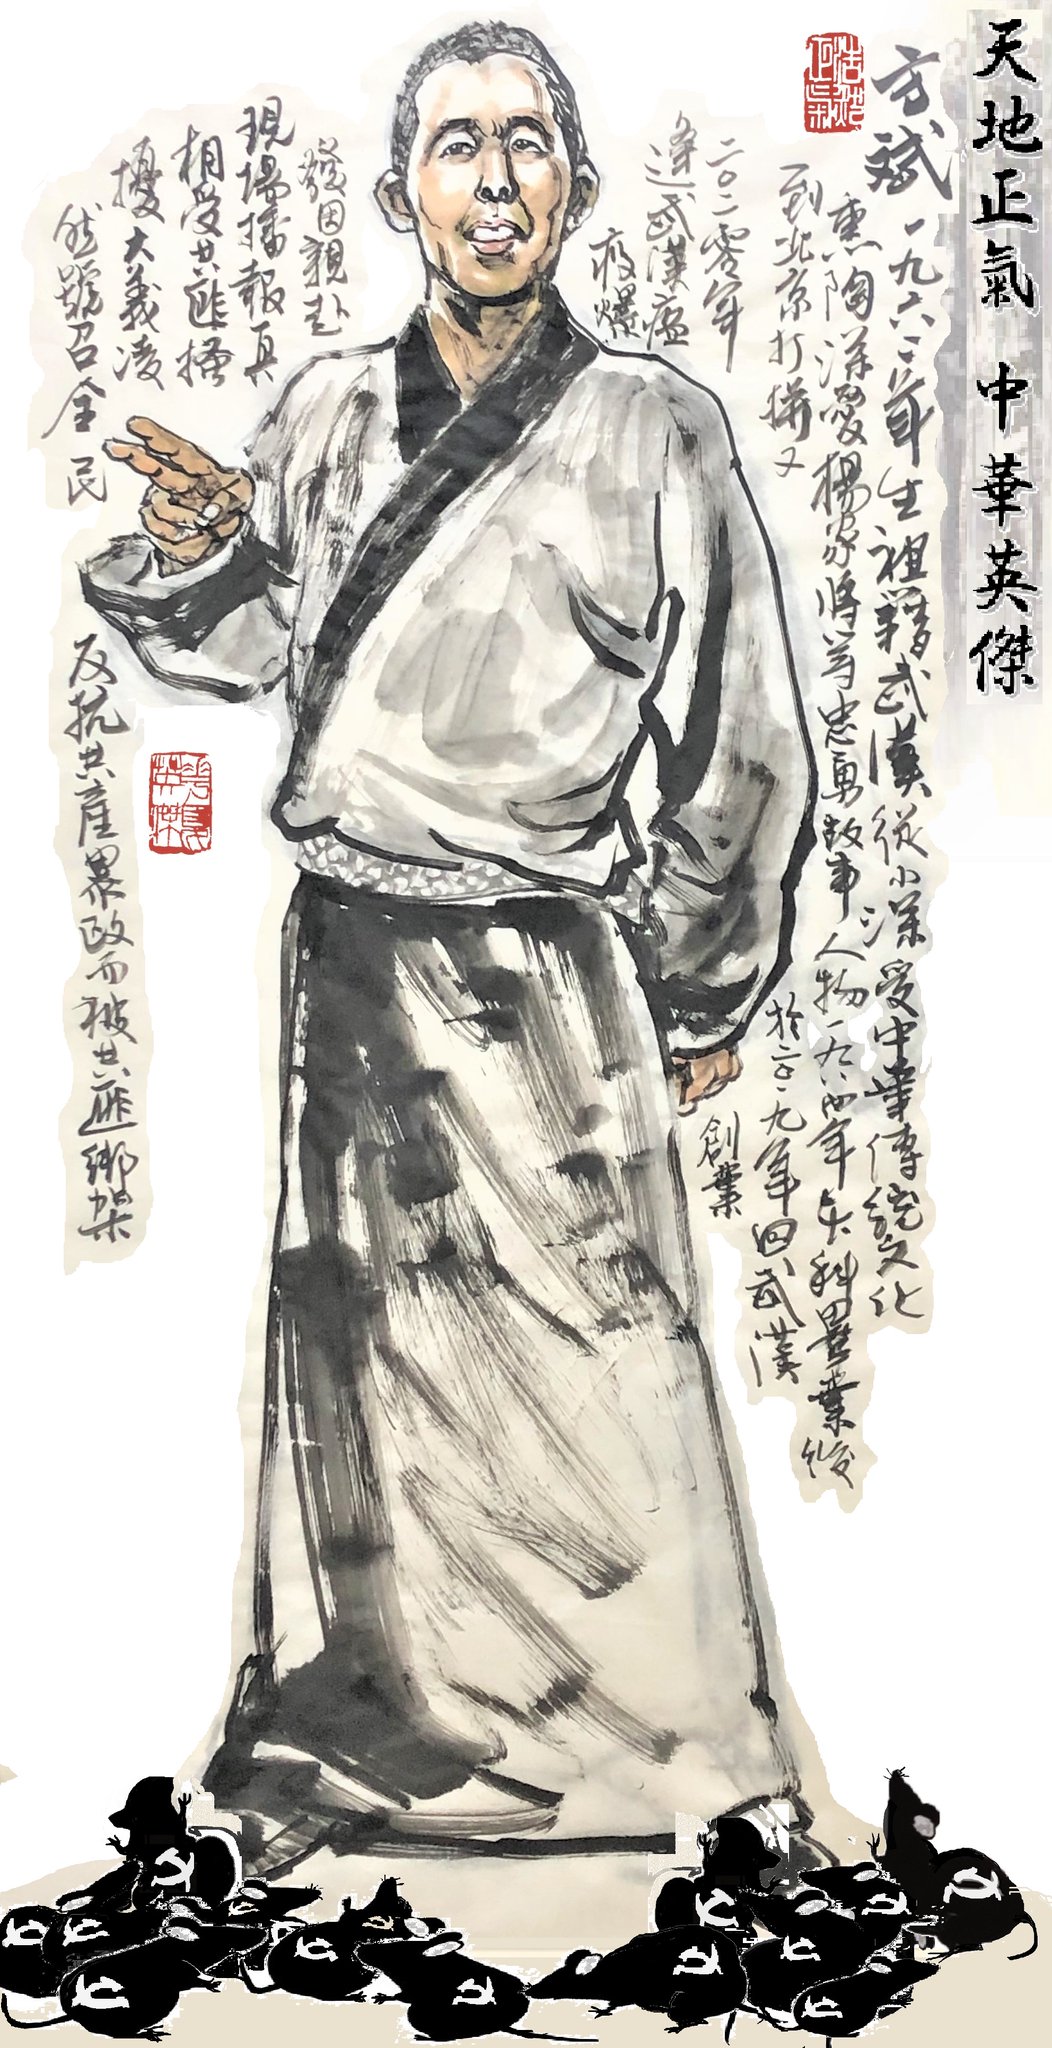 天地正氣 中華英傑
方斌 一九六八年生祖籍武漢從小深受中華傳統文化
熏陶深愛楊家將等忠勇故事人物一九八四年大科畢業後
到北京打拼又於二〇一九年回武漢
創業
二〇二零年
逢武漢瘟
疫爆
發因親赴
現場播報真
相受共匪搔
擾大義凌
然號召全民
反抗共產暴政而被共匪綁架
浩然正氣
英傑